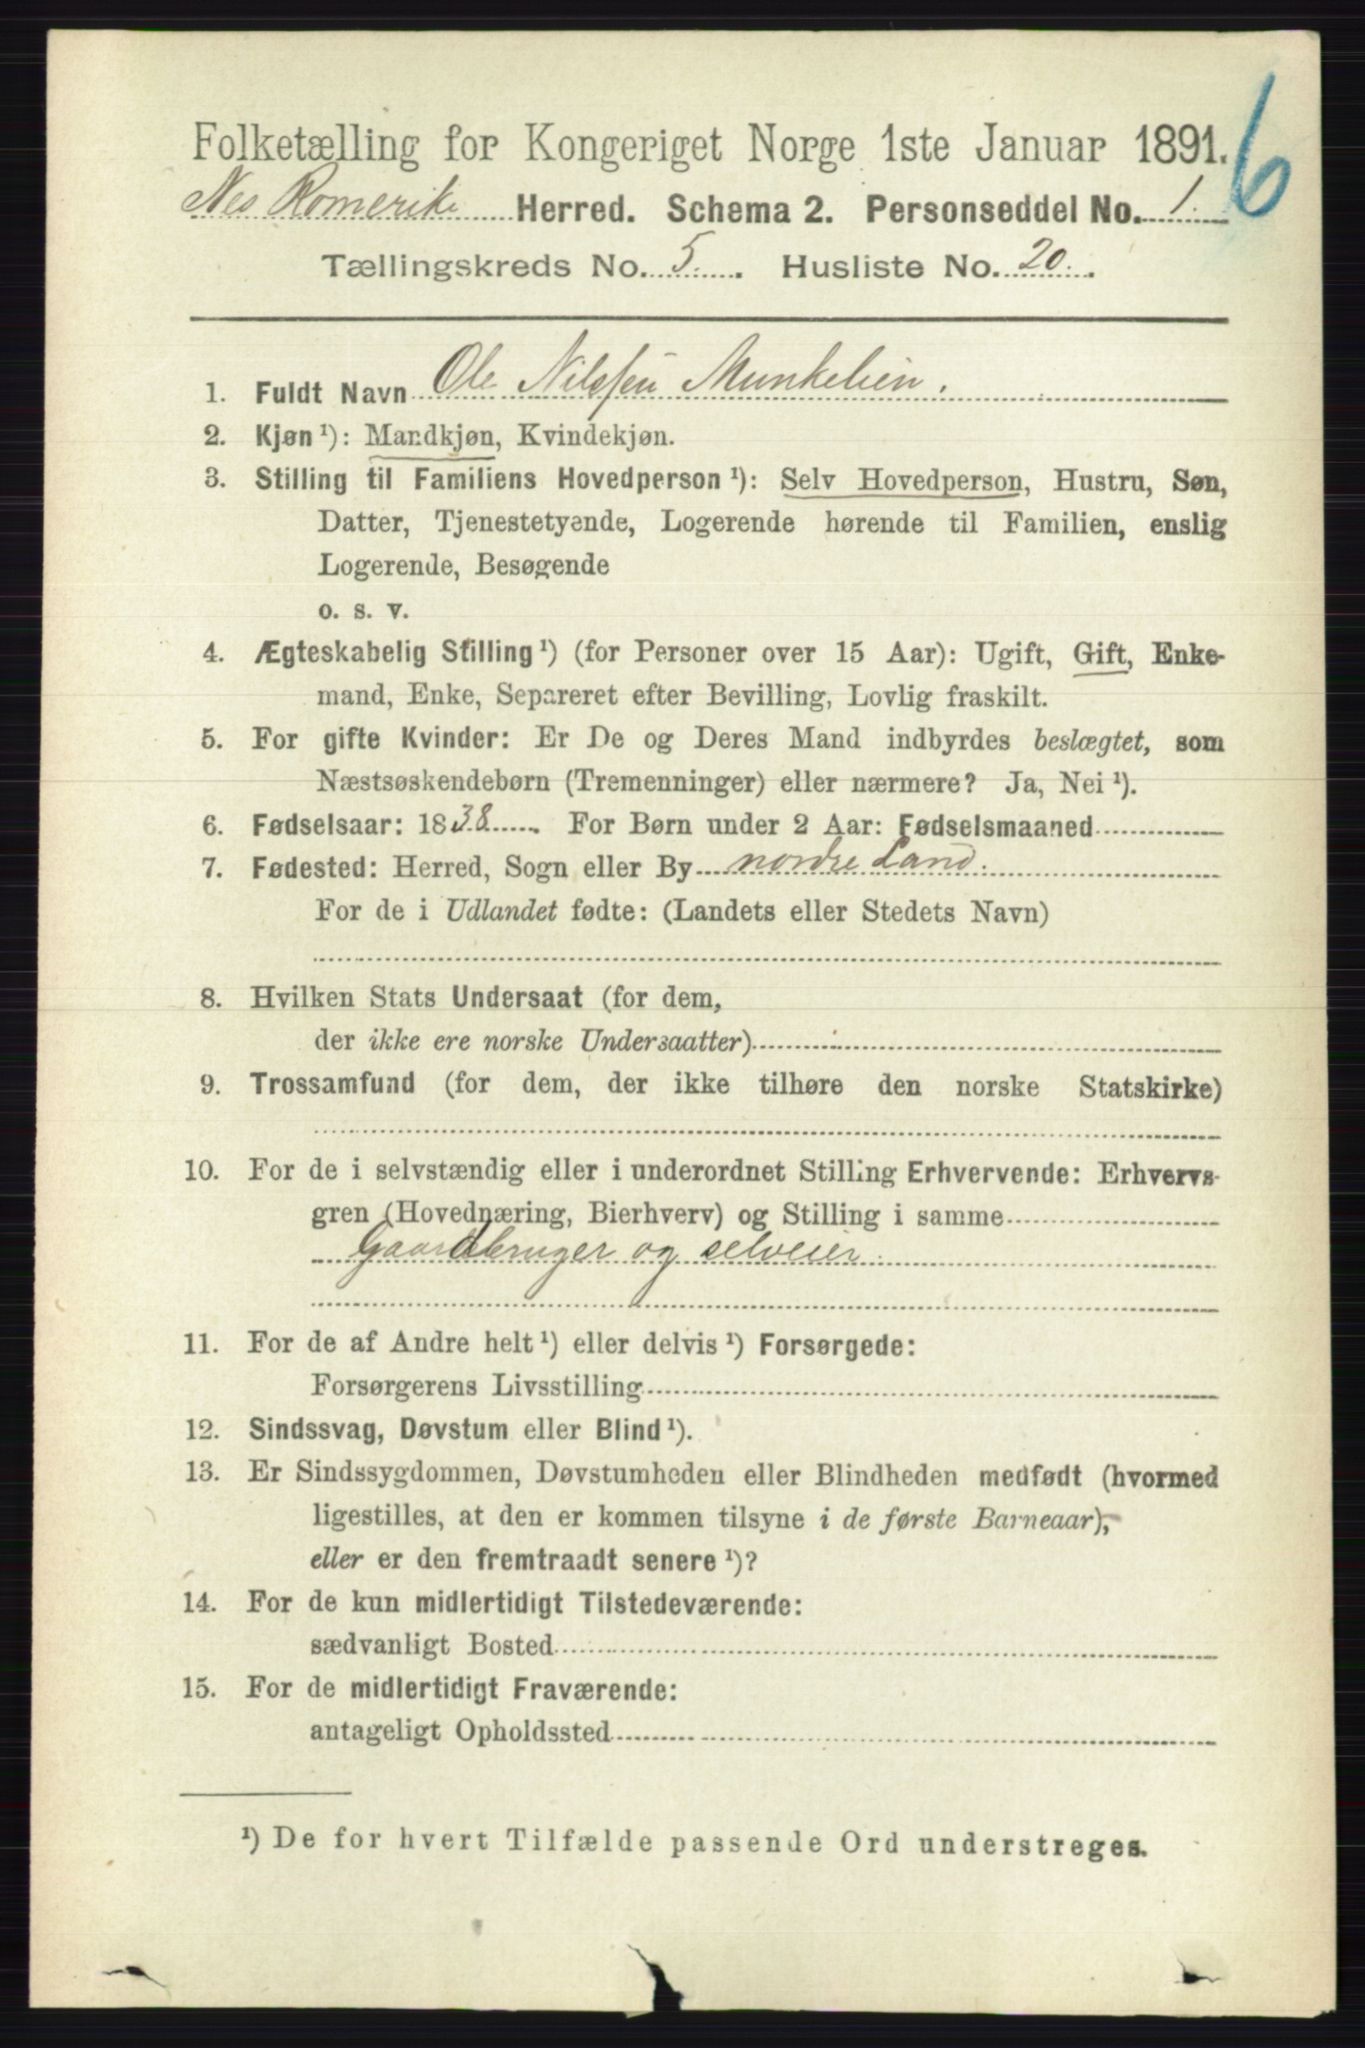 6
Folketælling for Kongeriget Norge 1ste Januar 1891.
Nes Romerike Herred. Schema 2. Personseddel No. 1.
Tællingskreds No. 5. Husliste No. 20.
1. Fuldt Navn Ole Nilssen Munkelien.
2. Kjøn ¹): Mandkjøn, Kvindekjøn.
3. Stilling til Familiens Hovedperson ¹): Selv Hovedperson, Hustru, Søn,
Datter, Tjenestetyende, Logerende hørende til Familien, enslig
Logerende, Besøgende
o. s. v.
4. Ægteskabelig Stilling ¹) (for Personer over 15 Aar): Ugift, Gift, Enke-
mand, Enke, Separeret efter Bevilling, Lovlig fraskilt.
5. For gifte Kvinder: Er De og Deres Mand indbyrdes beslægtet, som
Næstsøskendebørn (Tremenninger) eller nærmere? Ja, Nei ¹).
6. Fødselsaar: 1838. For Børn under 2 Aar: Fødselsmaaned
7. Fødested: Herred, Sogn eller By nordre Land.
For de i Udlandet fødte: (Landets eller Stedets Navn)
8. Hvilken Stats Undersaat (for dem,
der ikke ere norske Undersaatter)
9. Trossamfund (for dem, der ikke tilhøre den norske Statskirke)
10. For de i selvstændig eller i underordnet Stilling Erhvervende: Erhvervs-
gren (Hovednæring, Bierhverv) og Stilling i samme
Gaardbruger og selveier.
11. For de af Andre helt ¹) eller delvis ¹) Forsørgede:
Forsørgerens Livsstilling
12. Sindssvag, Døvstum eller Blind ¹).
13. Er Sindssygdommen, Døvstumheden eller Blindheden medfødt (hvormed
ligestilles, at den er kommen tilsyne i de første Barneaar),
eller er den fremtraadt senere ¹)?
14. For de kun midlertidigt Tilstedeværende:
sædvanligt Bosted
15. For de midlertidigt Fraværende:
antageligt Opholdssted
¹) De for hvert Tilfælde passende Ord understreges.